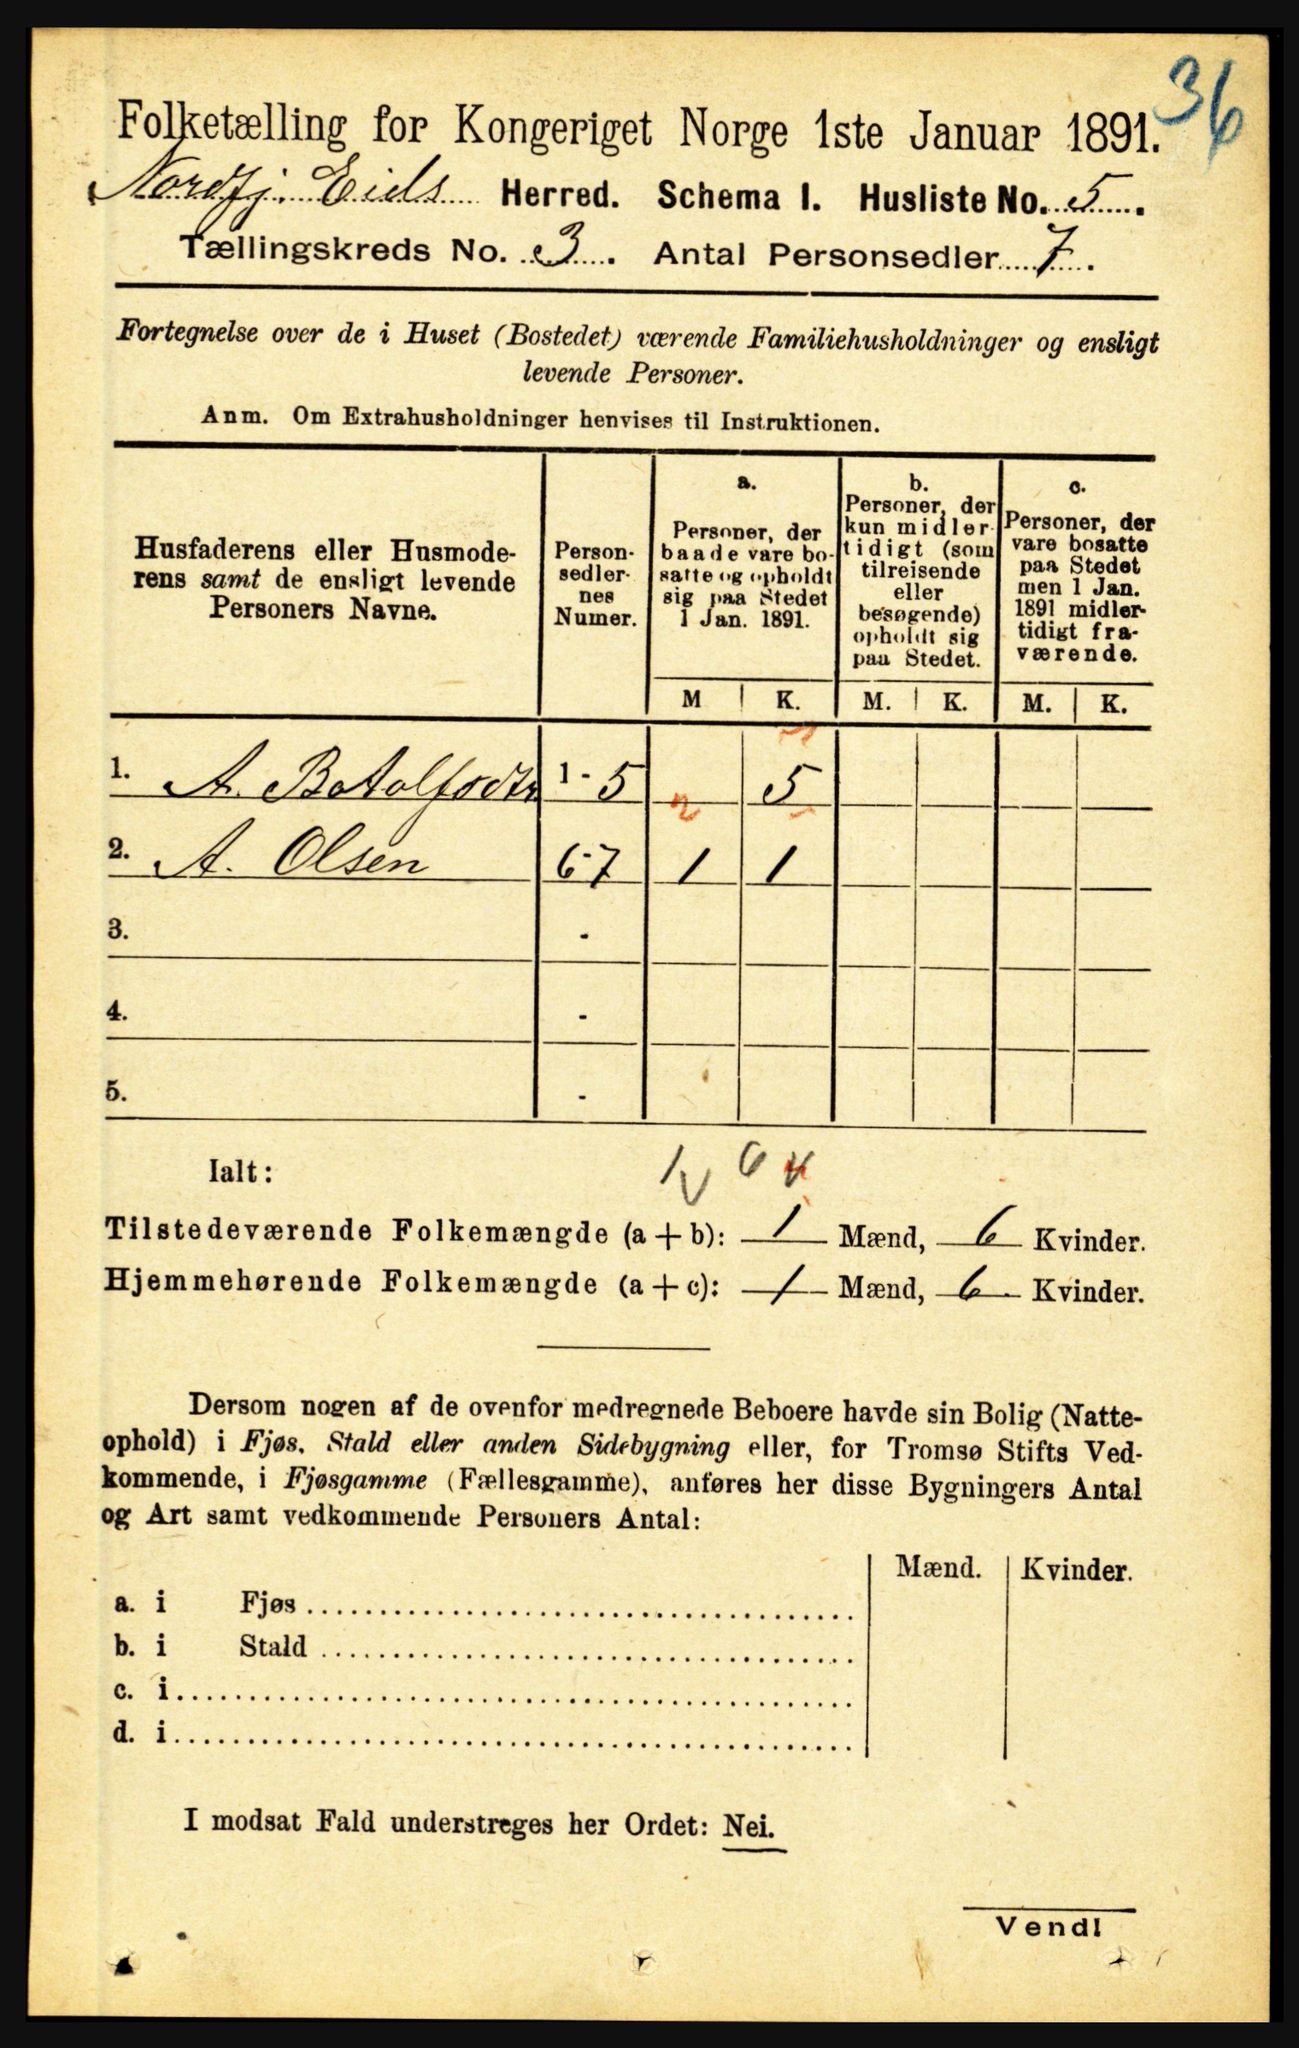 36
Folketælling for Kongeriget Norge 1ste Januar 1891.
Nordfj. Eids Herred. Schema I. Husliste No. 5.
Tællingskreds No. 3. Antal Personsedler 7.
Fortegnelse over de i Huset (Bostedet) værende Familiehusholdninger og ensligt
levende Personer.
Anm. Om Extrahusholdninger henvises til Instruktionen.
Husfaderens eller Husmode-
rens samt de ensligt levende
Personers Navne.
Person-
sedler-
nes
Numer.
a.
Personer, der
baade vare bo-
satte og opholdt
sig paa Stedet
1 Jan. 1891.
b.
Personer, der
kun midler-
tidigt (som
tilreisende
eller
besøgende)
opholdt sig
paa Stedet.
c.
Personer, der
vare bosatte
paa Stedet
men 1 Jan.
1891 midler-
tidigt fra-
værende.
M K. M. K. M. K.
1. A. Botolfsdtr 1-5 5
2. A. Olsen 6-7 1 1
3. -
4. -
5. -
Ialt: 1 6
Tilstedeværende Folkemængde (a+b): 1 Mænd, 6 Kvinder.
Hjemmehørende Folkemængde (a+c): 1 Mænd, 6 Kvinder.
Dersom nogen af de ovenfor medregnede Beboere havde sin Bolig (Natte-
ophold) i Fjøs, Stald eller anden Sidebygning eller, for Tromsø Stifts Ved-
kommende, i Fjøsgamme (Fællesgamme), anføres her disse Bygningers Antal
og Art samt vedkommende Personers Antal:
Mænd. Kvinder.
a. i Fjøs
b. i Stald
c. i
d. i
I modsat Fald understreges her Ordet: Nei.
Vend!